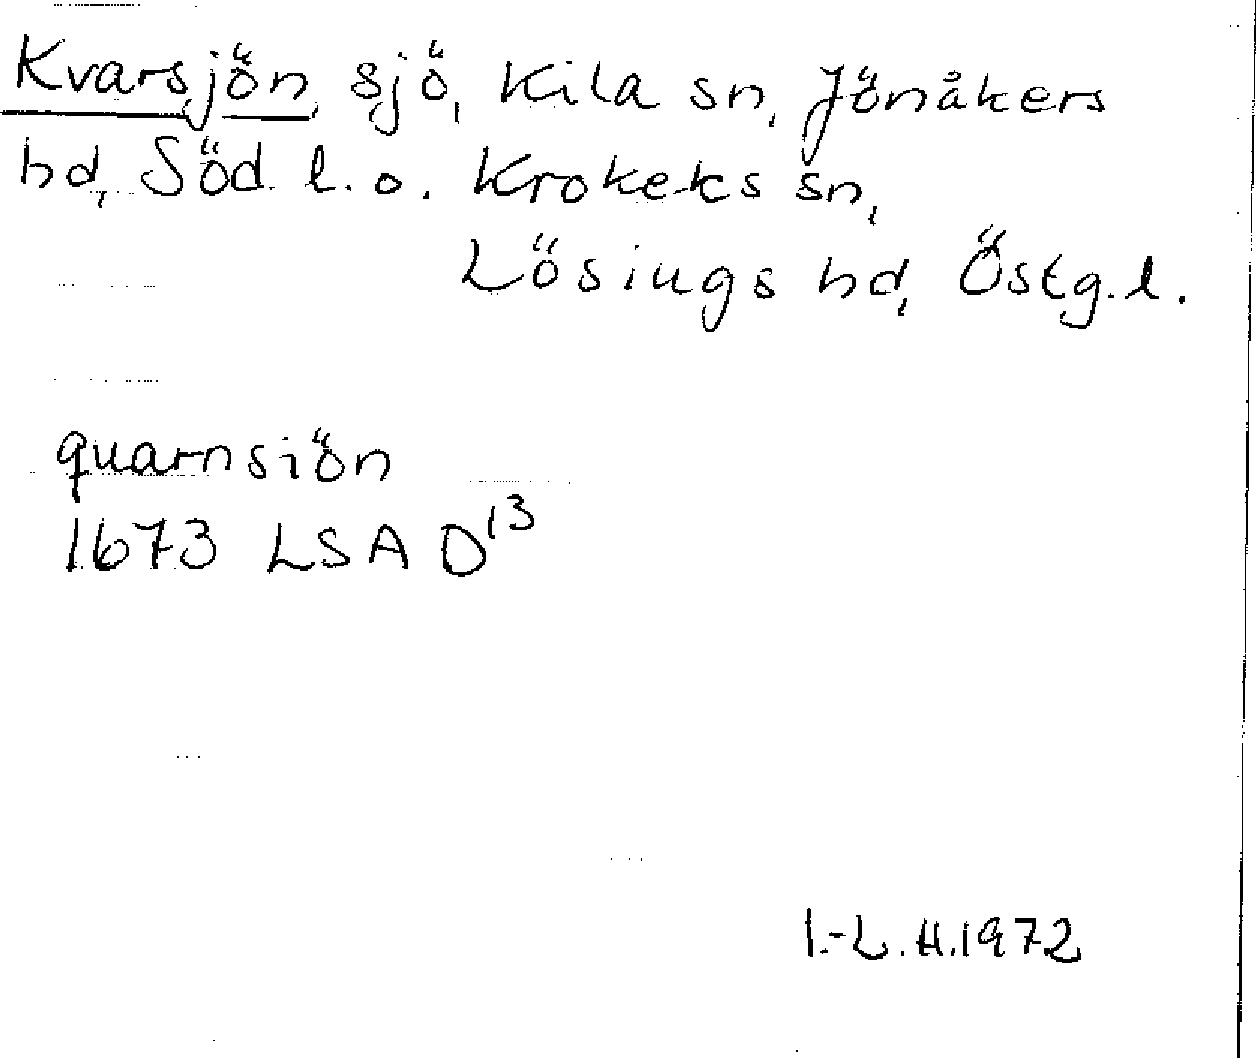 Kvarsjön, sjö, Kila sn, Jönåkers
hd, Söd. l. o. Krokeks sn,
Lösings hd, Östg. l.
quarnsiön
1673 LSA D13
I.-L. H. 1972